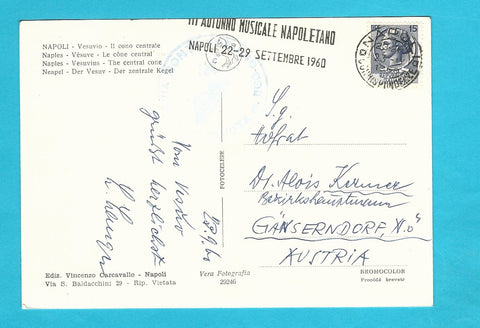 III AUTUNNO MUSICALE NAPOLETANO
NAPOLI 22-29 SETTEMBRE 1960
15
NAPOLI - Vesuvio - Il cono centrale
Naples - Vésuve - Le cône central
Naples - Vesuvius - The central cone
Neapel - Der Vesuv - Der zentrale Kegel
Vom
grüßt herzlichst
23.9.60
FOTOCELERE
S.g.
Hofrat
Dr. Alois Kermer
Bezirkshauptmann
GÄNSERNDORF, N.Ö
AUSTRIA
Ediz. Vincenzo Carcavallo - Napoli
Via S. Baldacchini 29 - Rip. Vietata
Vera Fotografia
29246
BROMOCOLOR
Procédé breveté